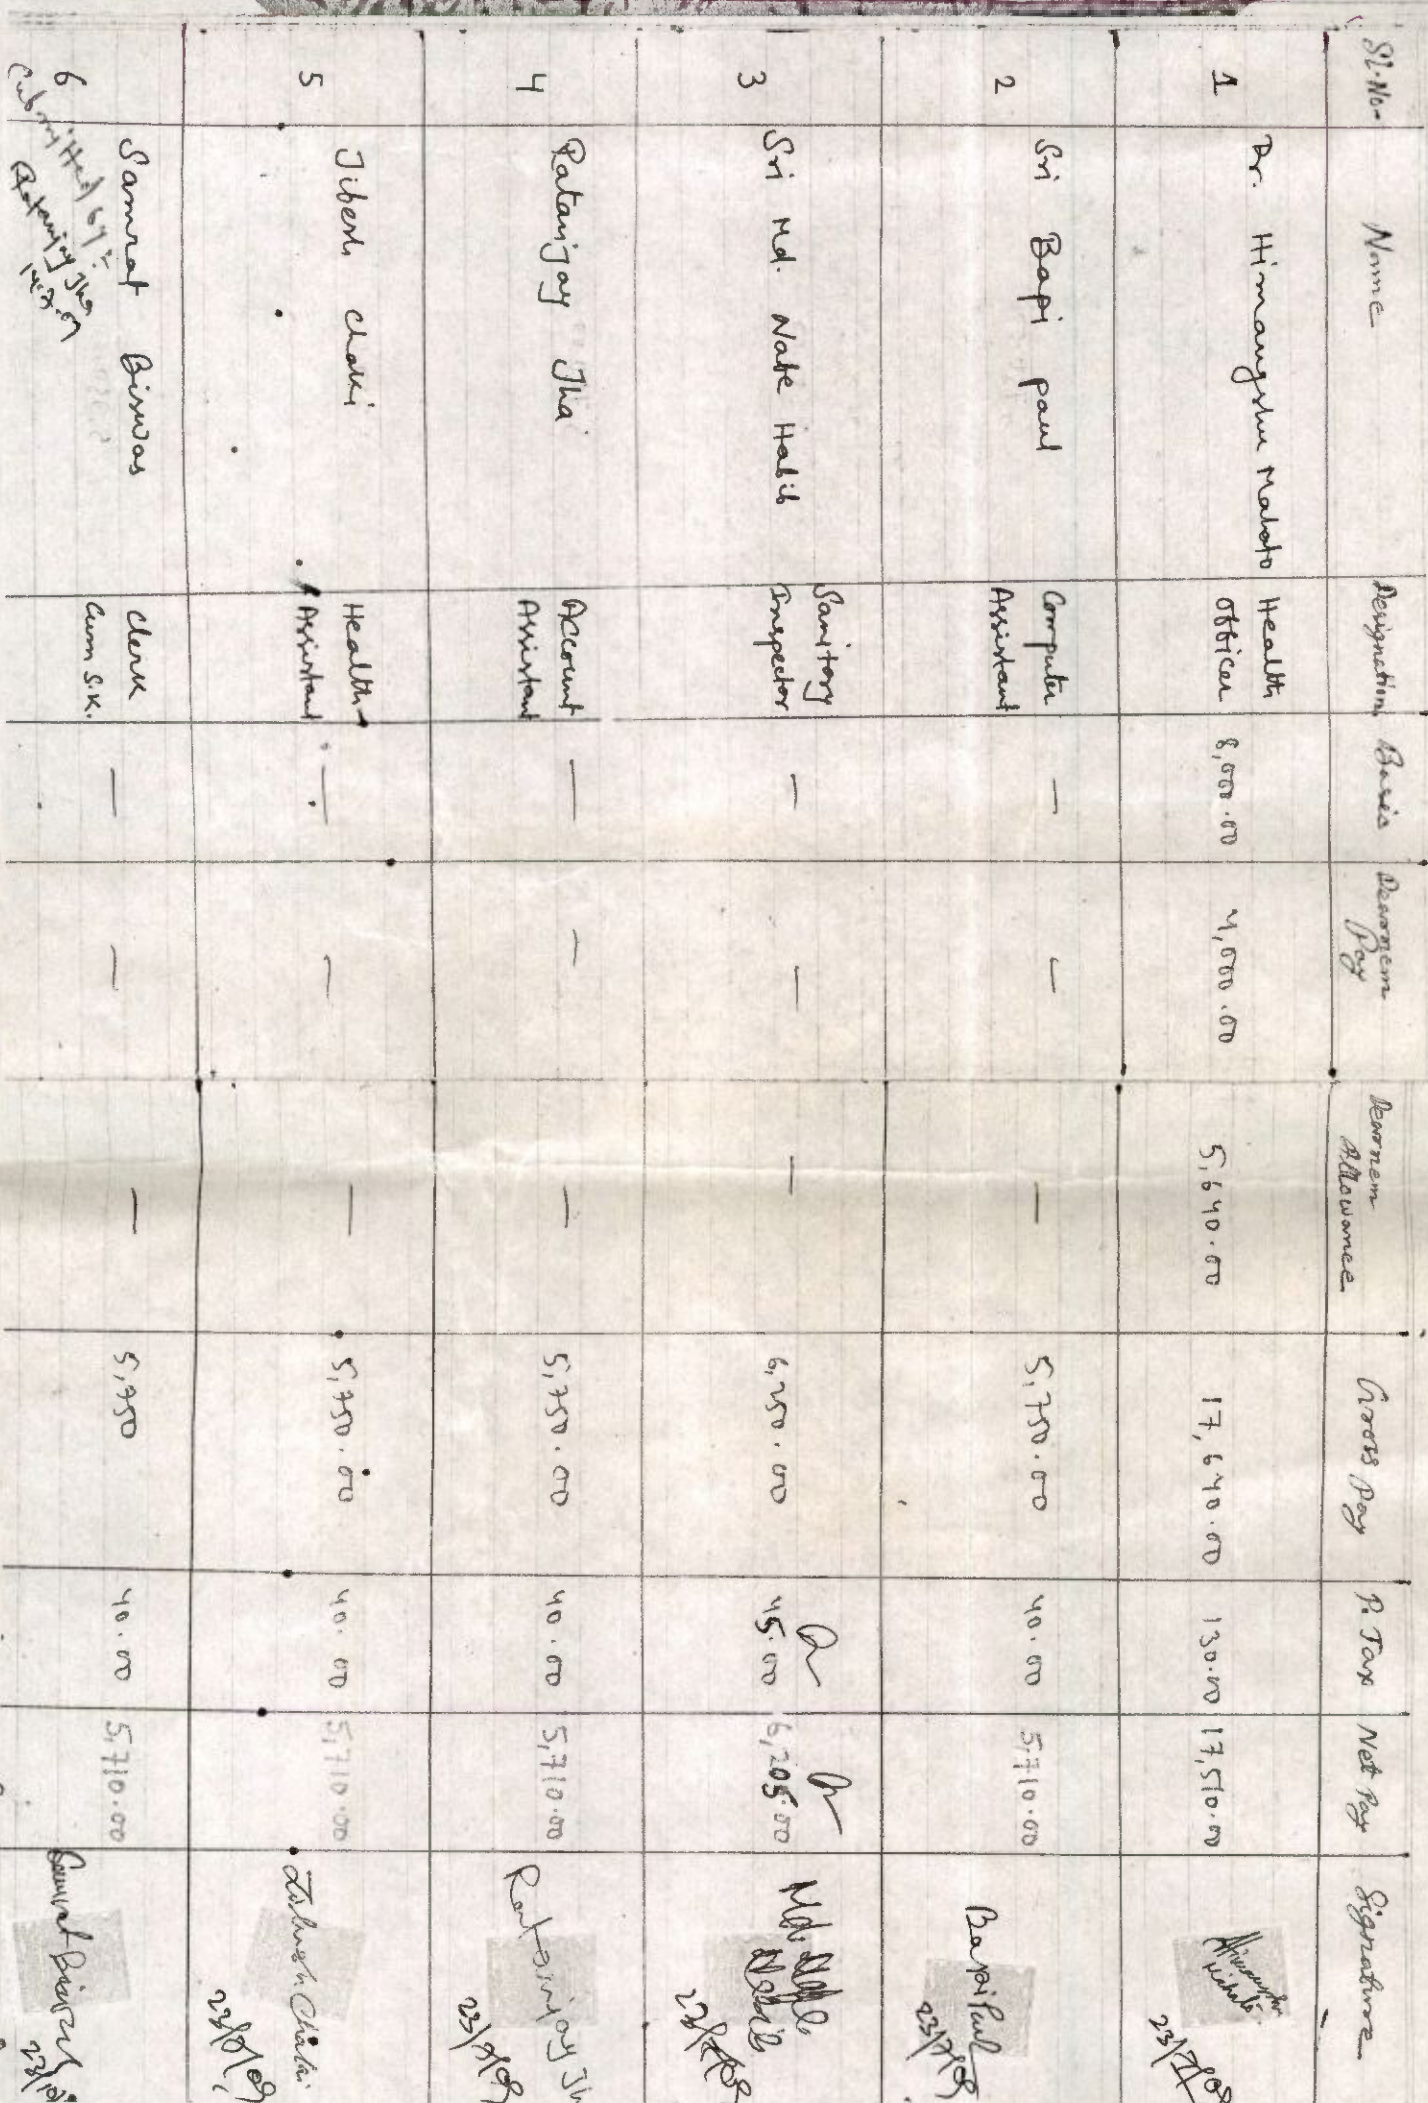 Sl. No. Name Designation Basic Dearnem Pay Dearnem Allowance Gross Pay P. Tax Net Pay Signature
1 Dr. Himangshu Mahato Health Officer 8,000.00 4,000.00 5,640.00 17,640.00 130.00 17,510.00 Himangshu Mahato 23/7/09
2 Sri Bapi Paul Computer Assistant — — — 5,750.00 40.00 5,710.00 Bapi Paul 23/7/09
3 Sri Md. Nabe Habib Sanitory Inspector — — — 6,250.00 45.00 6,205.00 Md. Habib 23/7/09
4 Ratanjay Jha Account Assistant — — — 5,750.00 40.00 5,710.00 Ratanjay Jh 23/7/09
5 Jibesh Chaki Health Assistant — — — 5,750.00 40.00 5,710.00 Jibesh Chaki 23/7/09
6 Samrat Biswas Clerk Cum S.K. — — — 5,750 40.00 5,710.00 Samrat Biswas
Submitted by:-
Ratanjay Jha